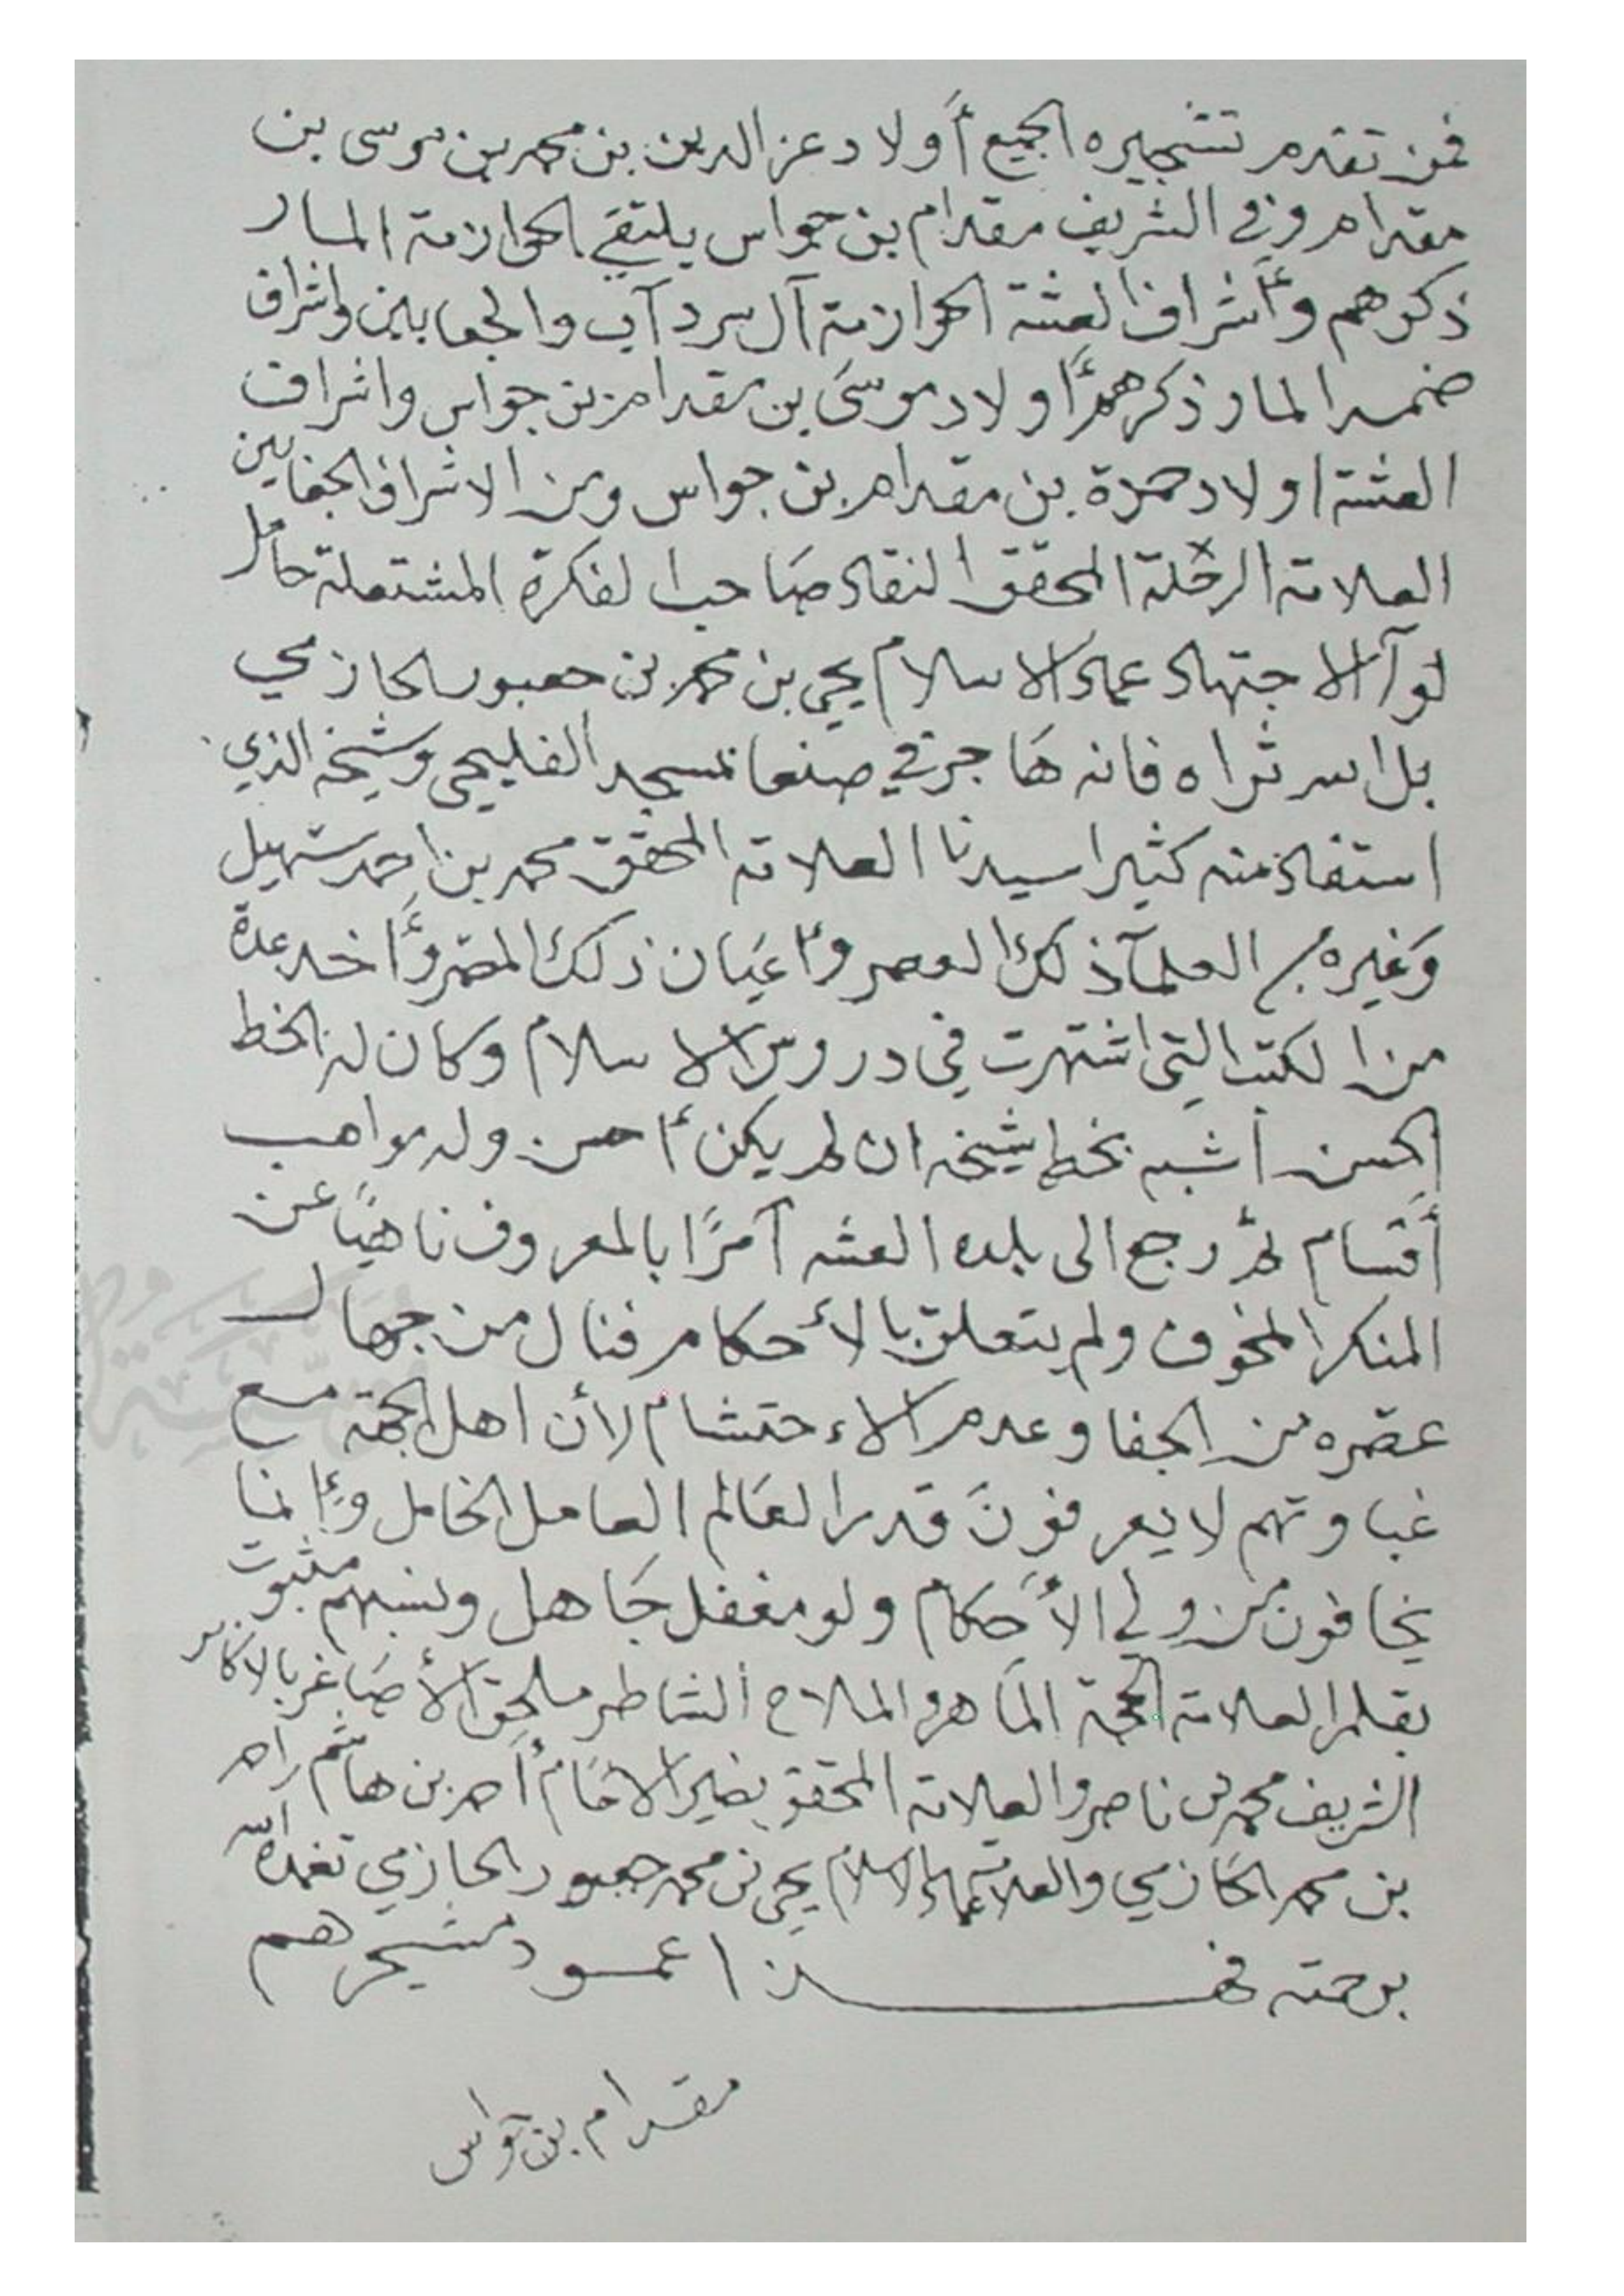 فمن تقدم تشجيره الجميع أولاد عز الدين بن محمد بن موسى بن
مقدام وفي الشريف مقدام بن جواس يلتقي الحوازمة المار
ذكرهم وأشراف العشة الحوازمة آل سرداب والجعابين واشراف
ضمد المار ذكرهم أولاد موسى بن مقدام بن جواس واشراف
العشة اولاد حمزة بن مقدام بن جواس ومن الاشراف الجعابين
العلامة الرحلة المحقق النقاد صاحب الفكرة المشتعلة حامل
لوآ الاجتهاد عماد الاسلام يحيى بن محمد بن جعبور الحازمي
بل الله ثراه فانه هاجر في صنعا بمسجد الفليحي وشيخه الذي
استفاد منه كثيرا سيدنا العلامة المحقق محمد بن احمد سهيل
وغيره من العلمآ ذلك العصر وأعيان ذلك المصر وأخد عدة
من الكتب التي اشتهرت في دروس الاسلام وكان له الخط
الحسن أشبه بخط شيخه ان لم يكن أحسن وله مواهب
أقسام ثم رجع الى بلده العشه آمرًا بالمعروف ناهيًا عن
المنكر المخوف ولم يتعلق بالأحكام فنال من جهال
عصره من الجفا وعدم الاحتشام لأن اهل الجهة مع
غباوتهم لا يعرفون قدر العالم العامل الخامل وإنما
يخافون من ولي الأحكام ولو مغفل جاهل ونسبهم مثبوت
بقلم العلامة الحجة الماهر والملاح الشاطر ملحق الأصاغر بالاكابر
الشريف محمد بن ناصر والعلامة المحقق نصير الامام أحمد بن هاشم
بن محمد الحازمي والعلامة عماد الاسلام يحيى بن محمد جعبور الحازمي تغمده الله
برحمته فهذا عمود مشجرهم
مقدام بن جواس